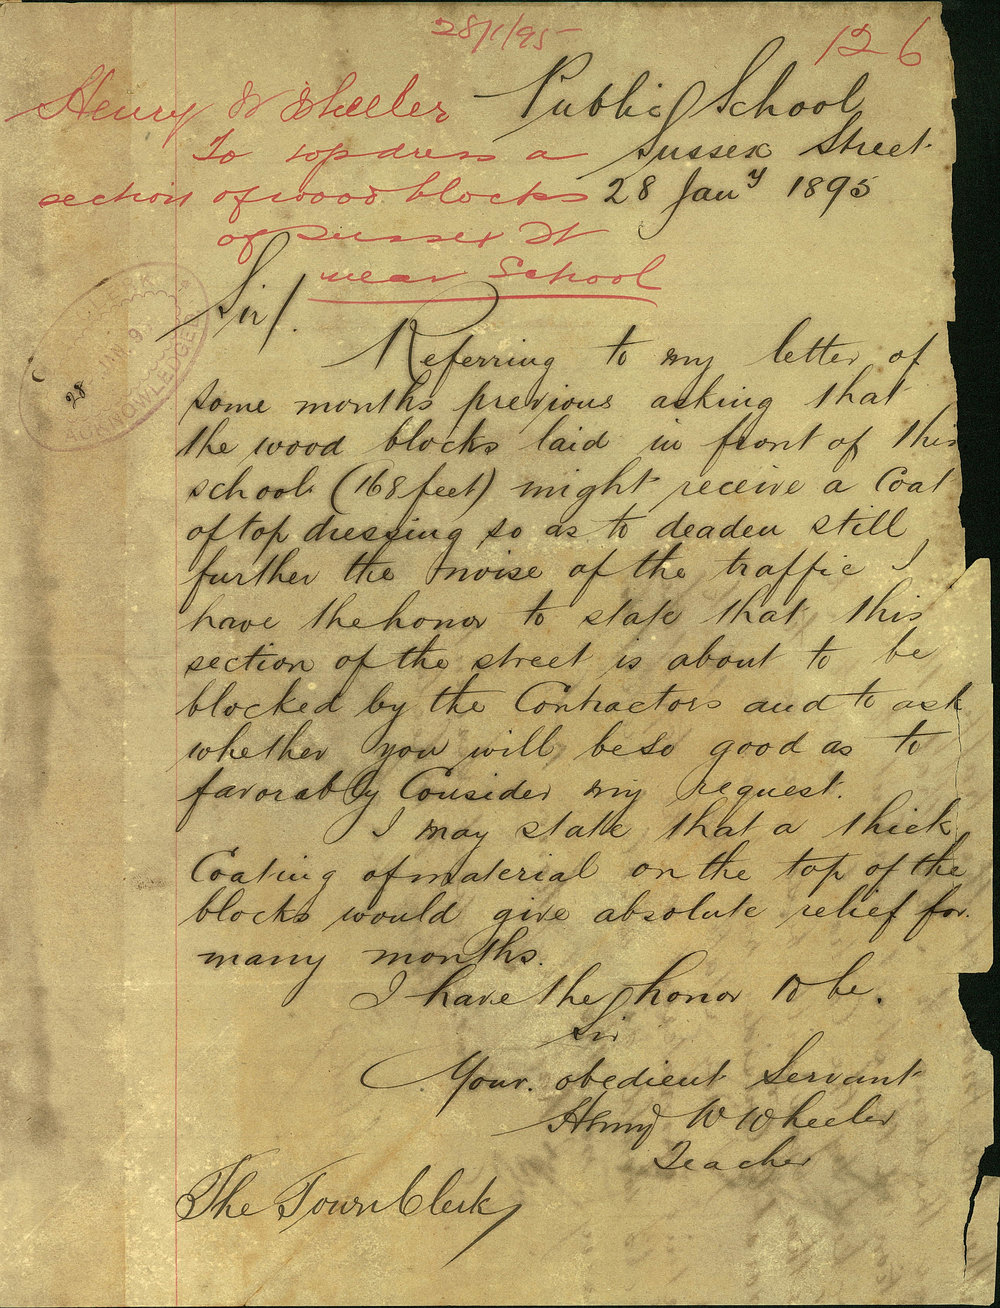 28/1/95
126
Henry W Wheeler
To top dress a
section of wood blocks
of Sussex St
near School
Public School
Sussex Street
28 Jany 1895
CLERK
28 JAN. 95
ACKNOWLEDGED
Sir/.
Referring to my letter of
some months previous asking that
the wood blocks laid in front of this
school (168 feet) might receive a Coat
of top dressing so as to deaden still
further the noise of the traffic I
have the honor to state that this
section of the street is about to be
blocked by the Contractors and to ask
whether you will be so good as to
favorably Consider my request.
I may state that a thick
Coating of material on the top of the
blocks would give absolute relief for
many months.
I have the honor to be.
Sir
Your obedient Servant
Henry W Wheeler
Teacher
The Town Clerk